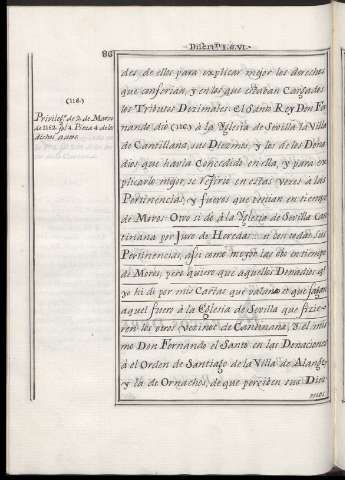 86
Discrn. I. §. VI.
des de ellos para explicar mejor los derechos
que canserian, y en los que estaban Cargados
los Tributos Dezimales. El Santo Rey Don Fer-
nando, dió (116) à la Yglesia de Sevilla la Villa
de Cantillana, sus Diezmos, y los de los Dona
dios que havia Concedido en ella, y para ex-
plicarlo mejor, se refirió en estas vezes à las
Pertinencias, y fueros que tenian en tiempo
de Moros. Otro si dó à la Yglesia de Sevilla Can
tiniana por Juro de Heredad
Pertinencias, assi como mejor las obo en tiempo
de Moros, pero quiero que aquellos Donadios q.
yo hi di por mis Cartas que valan, et que fagan
aquel fuero à la Eglesia de Sevilla que fizie-
ren los otros Vecinos de Cantiniana, y el mis
mo Don Fernando el Santo en las Donaciones
à el Orden de Santiago de la Villa de Alange,
y la de Ornachos, de que perciben sus Diez
mos
(116.)
Privileg.º de 20 de Marzo
de 1252
dichos autos.